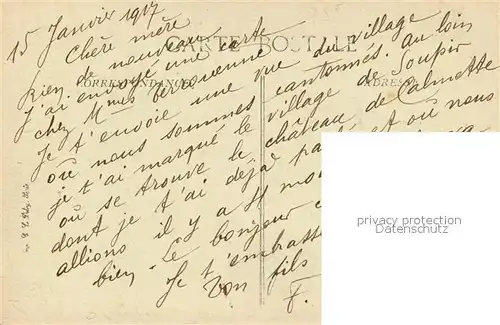 15 Janvier 1917
Chère mère
Rien de nouveau
J'ai envoyé une carte
chez Mmes
Je t'envoie une vue du village
où nous sommes cantonnés. Au loin
je t'ai marqué le village de Soupir
où se trouve le château de Calmette
dont je t'ai déjà et où nous
allions il y a 11
bien - Le bonjour
Je t'embrasse
Ton fils
F.
CARTE POSTALE
CORRESPONDANCE
ADRESSE
privacy protection
Datenschutz